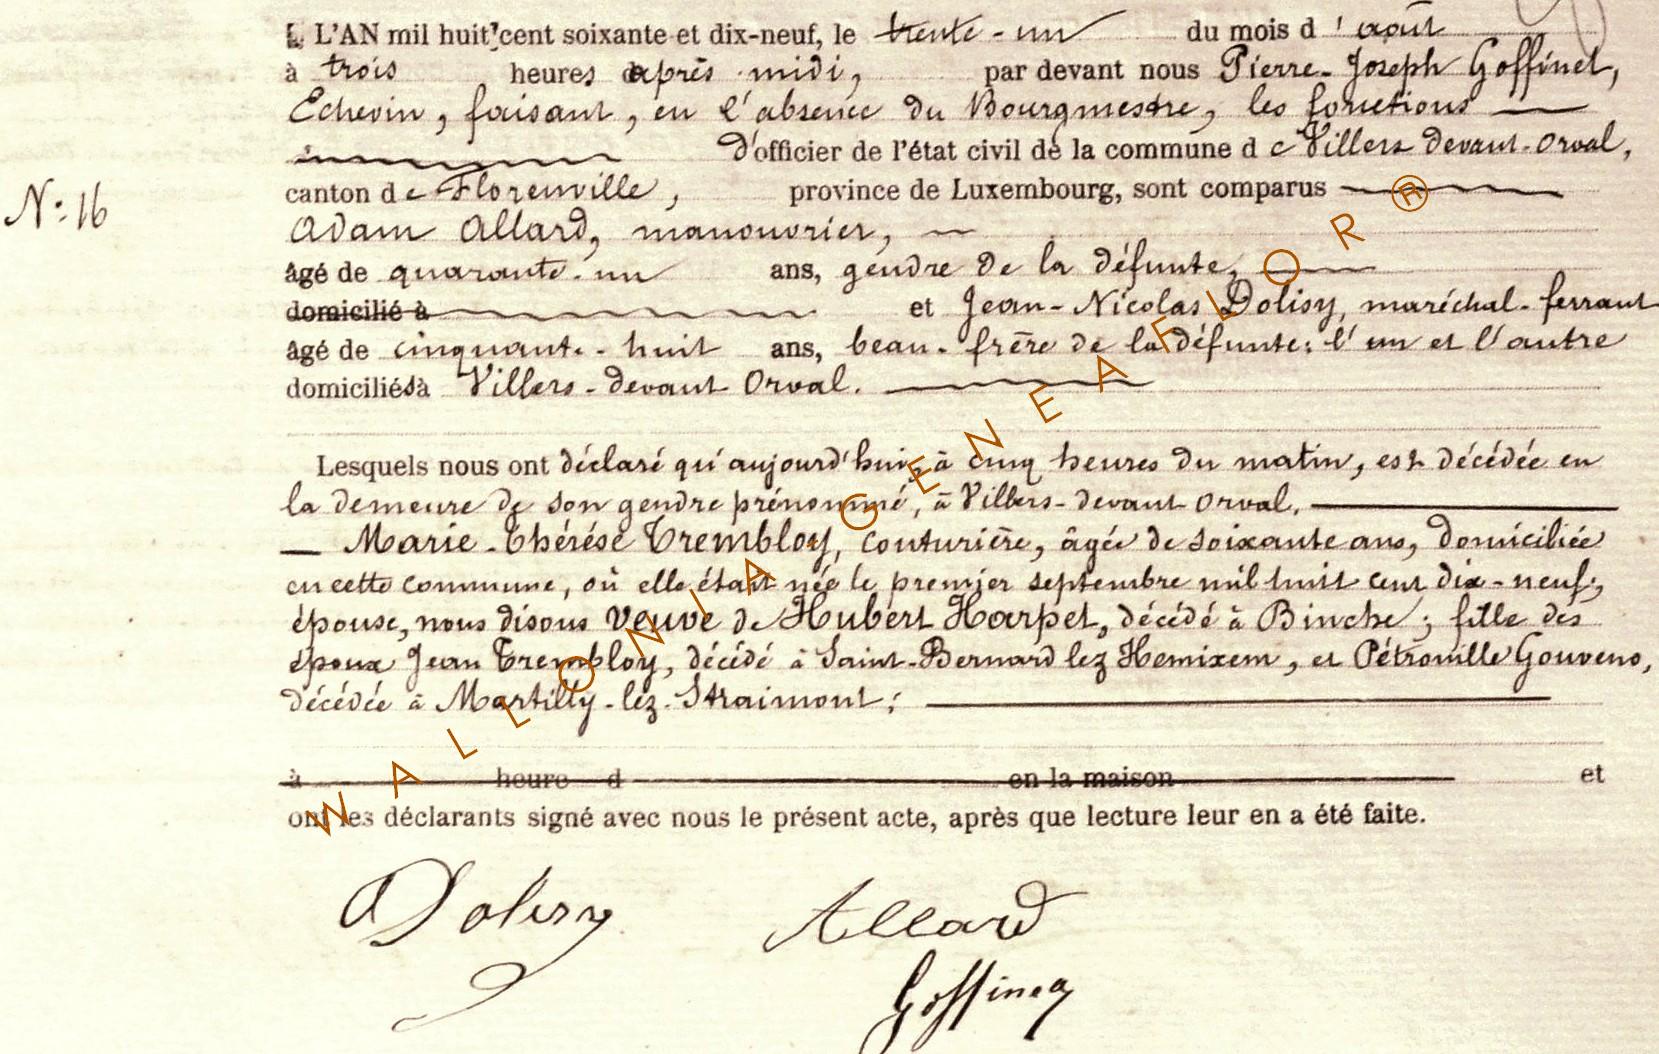 L'AN mil huit cent soixante et dix-neuf, le trente-un du mois d'août
à trois heures après midi, par devant nous Pierre-Joseph Goffinet,
Echevin, faisant, en l'absence du Bourgmestre, les fonctions
d'officier de l'état civil de la commune de Villers devant-Orval,
canton de Florenville, province de Luxembourg, sont comparus
N: 16
Adam Allard, manouvrier,
âgé de quarante-un ans, gendre de la défunte,
domicilié à et Jean-Nicolas Dolisy, maréchal-ferrant
âgé de cinquante-huit ans, beau-frère de la défunte; l'un et l'autre
domiciliés à Villers-devant Orval.
Lesquels nous ont déclaré qu'aujourd'hui, à cinq heures du matin, est décédée en
la demeure de son gendre prénommé, à Villers-devant Orval,
Marie-Thérése Trembloy, couturière, âgée de soixante ans, domiciliée
en cette commune, où elle était née le premier septembre mil huit cent dix-neuf,
épouse, nous disons veuve de Hubert Harpet, décédé à Binche; fille des
époux Jean Trembloy, décédé à Saint-Bernard lez Hemixem, et Pétronille Gouveno,
décédée à Martilly-lez-Straimont;
à heure d en la maison et
ont les déclarants signé avec nous le présent acte, après que lecture leur en a été faite.
Dolisy Allard
Goffinet
WALLONIA GENEAFLOR ®